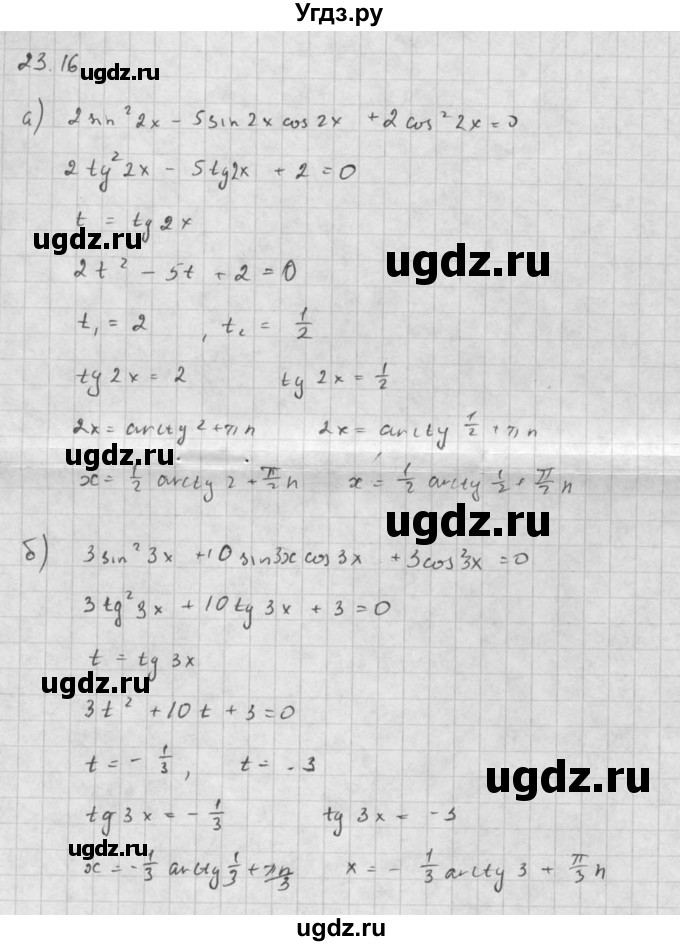 Угдз.ру
23.16
ugdz.ru
а) 2 sin² 2x - 5 sin 2x cos 2x + 2 cos² 2x = 0
2 tg² 2x - 5 tg 2x + 2 = 0
t = tg 2x
ugdz.ru
ugdz.ru
2t² - 5t + 2 = 0
t₁ = 2 , t₂ = 1/2
tg 2x = 2 tg 2x = 1/2
2x = arctg 2 + πn 2x = arctg 1/2 + πn
ugdz.ru
x = 1/2 arctg 2 + π/2 n x = 1/2 arctg 1/2 + π/2 n
ugdz.ru
б) 3 sin² 3x + 10 sin 3x cos 3x + 3 cos² 3x = 0
3 tg² 3x + 10 tg 3x + 3 = 0
t = tg 3x
ugdz.ru
3t² + 10t + 3 = 0
t = - 1/3 , t = -3
ugdz.ru
tg 3x = - 1/3 tg 3x = -3
ugdz.ru
x = - 1/3 arctg 1/3 + πn/3 x = - 1/3 arctg 3 + π/3 n
ugdz.ru